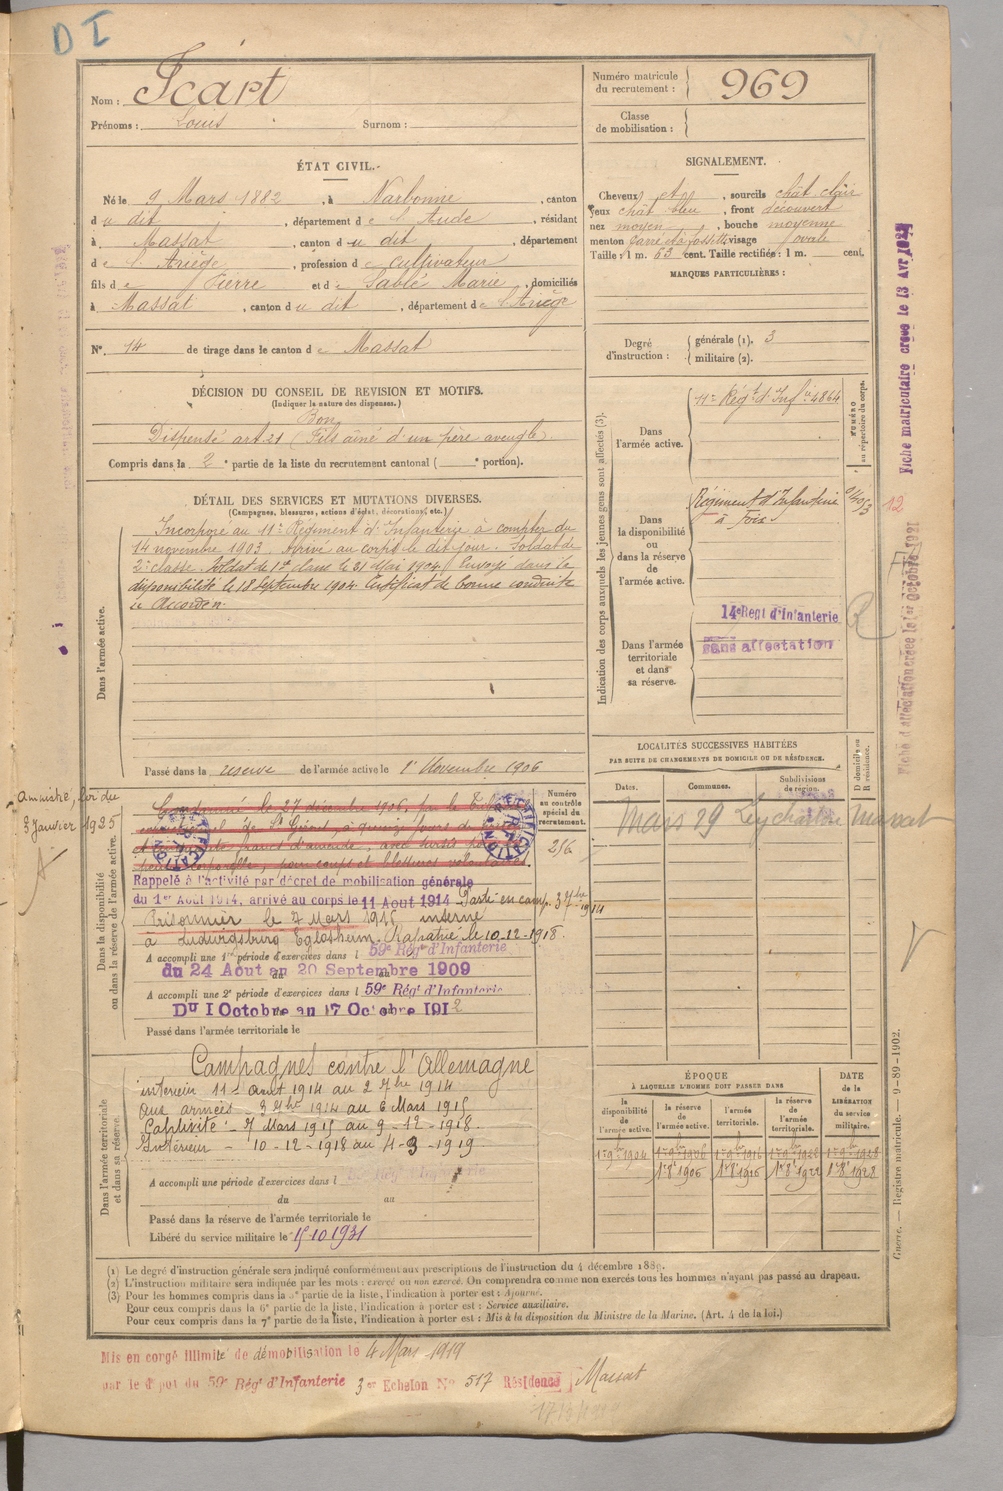 D I
Nom : Icart
Prénoms : Louis Surnom :
Numéro matricule du recrutement : 969
Classe de mobilisation :
ÉTAT CIVIL.
Né le 9 Mars 1882, à Narbonne, canton
du dit, département de l'Aude, résidant
à Massat, canton du dit, département
de l'Ariège, profession de cultivateur
fils de Pierre et de Sablé Marie, domiciliés
à Massat, canton du dit, département de l'Ariège
N° 14 de tirage dans le canton de Massat
SIGNALEMENT.
Cheveux et, sourcils chât clair
yeux chât bleu, front découvert
nez moyen, bouche moyenne
menton visage ovale
Taille : 1 m. 63 cent. Taille rectifiée : 1 m. cent.
MARQUES PARTICULIÈRES :
Degré d'instruction : générale (1). 3
militaire (2).
DÉCISION DU CONSEIL DE REVISION ET MOTIFS.
(Indiquer la nature des dispenses.)
Bon
Dispensé art 21 (Fils aîné d'un père aveugle)
Compris dans la 2e partie de la liste du recrutement cantonal ( e portion).
DÉTAIL DES SERVICES ET MUTATIONS DIVERSES.
(Campagnes, blessures, actions d'éclat, décorations, etc.)
Dans l'armée active.
Incorporé au 11e Régiment d'Infanterie à compter du
14 novembre 1903. Arrivé au corps le dit jour. Soldat de
2e classe. Soldat de 1re classe le 21 Mai 1904. Envoyé dans la
disponibilité le 18 Septembre 1904. Certificat de bonne conduite
Accordé.
Passé dans la réserve de l'armée active le 1er Novembre 1906
Indication des corps auxquels les jeunes gens sont affectés (3).
NUMÉRO au répertoire du corps.
Dans l'armée active.
11e Régt d'Infie 4864
Dans la disponibilité ou dans la réserve de l'armée active.
Régiment d'Infanterie
à Foix
12
Dans l'armée territoriale et dans sa réserve.
14e Regt d'Infanterie
sans affectation
R
Fiche matriculaire créée le 13 Avr
Fiche d'affectation créée le 1er Octobre 1921
LOCALITÉS SUCCESSIVES HABITÉES
PAR SUITE DE CHANGEMENTS DE DOMICILE OU DE RÉSIDENCE.
Dates. Communes. Subdivisions de région. D domicile ou R résidence.
Mars 29 Massat
Amnistié, loi du
3 Janvier 1925
Dans la disponibilité ou dans la réserve de l'armée active.
Numéro au contrôle spécial du recrutement.
216
Condamné le 27 décembre 1906, par le Tribunal
correctionnel de St Girons, à quinze jours de prison
et cinquante francs d'amende, avec sursis pour la
peine corporelle, pour coups et blessures volontaires
Rappelé à l'activité par décret de mobilisation générale
du 1er Aout 1914, arrivé au corps le 11 Aout 1914 Parti en camp. 3 7bre 1914
Prisonnier le 7 Mars 1915 interné
à Ludwigsburg Eglosheim. Rapatrié le 10-12-1918.
A accompli une 1re période d'exercices dans l 59e Régt d'Infanterie
du 24 Aout au 20 Septembre 1909
A accompli une 2e période d'exercices dans l 59e Régt d'Infanterie
DU 1 Octobre au 17 Octobre 1912
Passé dans l'armée territoriale le
Dans l'armée territoriale et dans sa réserve.
Campagnes contre l'Allemagne
intérieur 11 août 1914 au 2 7bre 1914
Aux armées - 3 7bre 1914 au 6 Mars 1915
Captivité - 7 Mars 1915 au 9-12-1918.
Intérieur - 10-12-1918 au 4-3-1919
A accompli une période d'exercices dans l 59e Régt d'Infanterie
du au
Passé dans la réserve de l'armée territoriale le
Libéré du service militaire le 15 10 1931
ÉPOQUE
À LAQUELLE L'HOMME DOIT PASSER DANS
DATE de la LIBÉRATION du service militaire.
la disponibilité de l'armée active. la réserve de l'armée active. l'armée territoriale. la réserve de l'armée territoriale.
1er 9bre 1904 1er 9bre 1906 1er 9bre 1916 1er 9bre 1922 1er 9bre 1928
1er 8bre 1906 1er 8bre 1916 1er 8bre 1922 1er 8bre 1928
Guerre. — Registre matricule. — 9-89-1902.
(1) Le degré d'instruction générale sera indiqué conformément aux prescriptions de l'instruction du 4 décembre 1889.
(2) L'instruction militaire sera indiquée par les mots : exercé ou non exercé. On comprendra comme non exercés tous les hommes n'ayant pas passé au drapeau.
(3) Pour les hommes compris dans la 5e partie de la liste, l'indication à porter est : Ajourné.
Pour ceux compris dans la 6e partie de la liste, l'indication à porter est : Service auxiliaire.
Pour ceux compris dans la 7e partie de la liste, l'indication à porter est : Mis à la disposition du Ministre de la Marine. (Art. 4 de la loi.)
Mis en congé illimité de démobilisation le 4 Mars 1919
par le dépot du 59e Régt d'Infanterie 3er Echelon N° 517 Résidence Massat